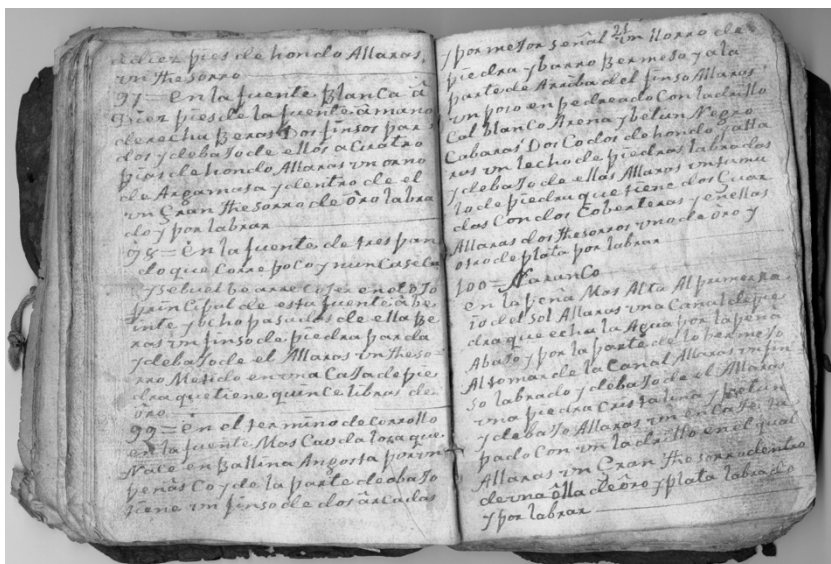 a diez pies de hondo Allaras
vn thesorro
97 = en la fuente Blanca â
Diez pies de la fuente â mano
derecha Beras Dos finsos par
dos y debaJo de ellos a Cuatro
pias de hondo Allaras vn orno
de Argamasa y dentro de el
vn Gran thesorro de ôro labra
do y por labrar
98 = en la fuente de tres pan
do que Corre poco y nunca seca
y se buelbe arrecoJer en ôtoJo
prinCipal de esta fuente â be
inte y ôcho pasadas de ella Be
ras vn finso de piedra parda
y debaJo de el Allaras vn theso
rro Metido en vna CaJa de pie
dra que tiene quince libras de
ôro
99 = en el termino de Corrollo
en la fuente Mas Cavda losa que
Nace en Ballina Angosta por vn
peñasCo y de la parte de abaJo
tiene vn finso de dos ârcadas
21
y por meJor señal vn Horro de
piedra y barro BermeJo y a la
parte de Arriba del finso Allaras
vn poso enpedreado Con ladrillo
Cal blanCo Arena y betun Negro
Cabaras Dos Codos de hondo y alla
ras vn lecho de piedras labradas
y debaJo de ellas Allaras vn fumu
lo de piedra que tiene dos Cuar
das Con dos Coberteras y en ellas
Allaras dos thesorros vno de ôro y
otro de plata por labrar
100 = Naranco
en la peña Mas Alta Al primer ra
io del sol Allaras vna Canal de pie
dra que echa la Agua por la peña
AbaJo y por la parte de lo bermeJo
Al somar de la Canal Allaras vn fin
so labrado y debaJo de el Allaras
vna piedra Cristalina y betun
y debaJo Allaras vn enCaJe ta
pado Con vn ladrillo en el qual
Allaras vn Gran thesorro dentro
de vna ôlla de ôro y plata labrado
y por labrar